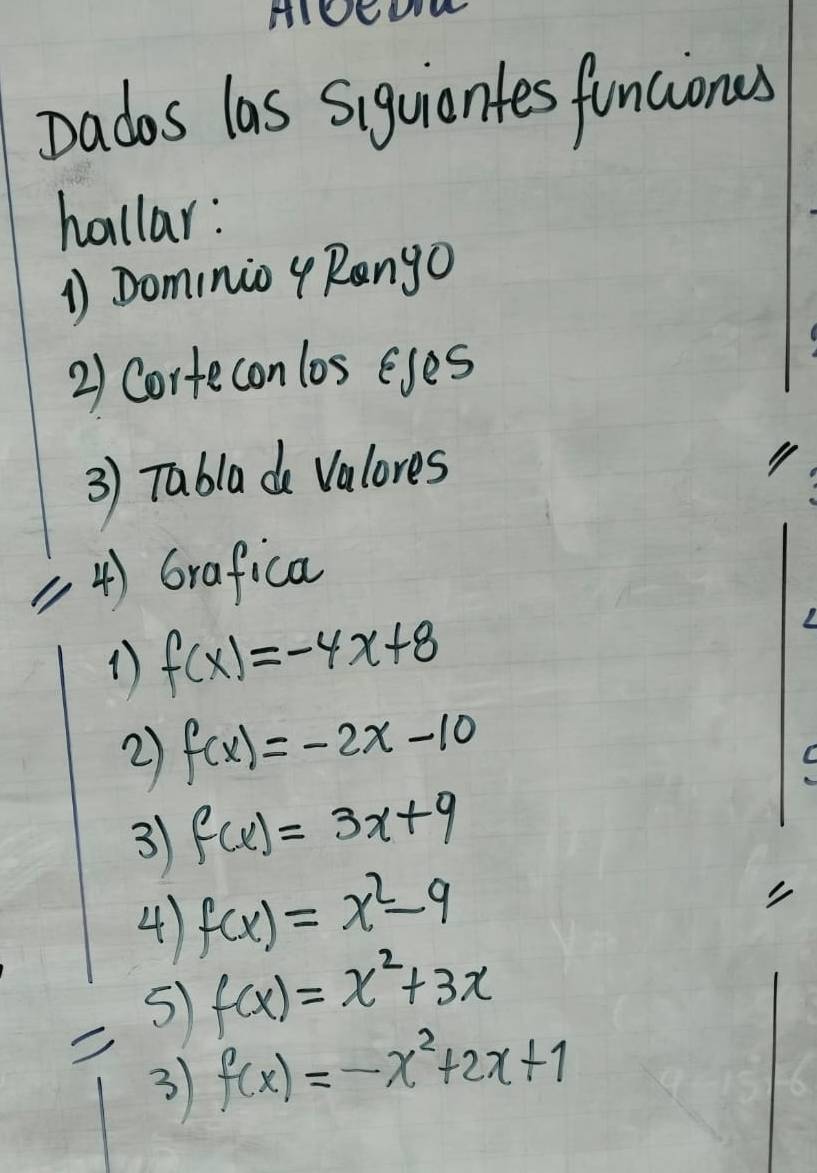 Dados las siguientes funciones
hallar:
1) Dominio y Rango
2) Corte con los Ejes
3) Tabla de Valores
4) Grafica
1) f(x)=-4x+8
2) f(x)=-2x-10
3) f(x)=3x+9
4) f(x)=x²-9
5) f(x)=x²+3x
3) f(x)=-x²+2x+1